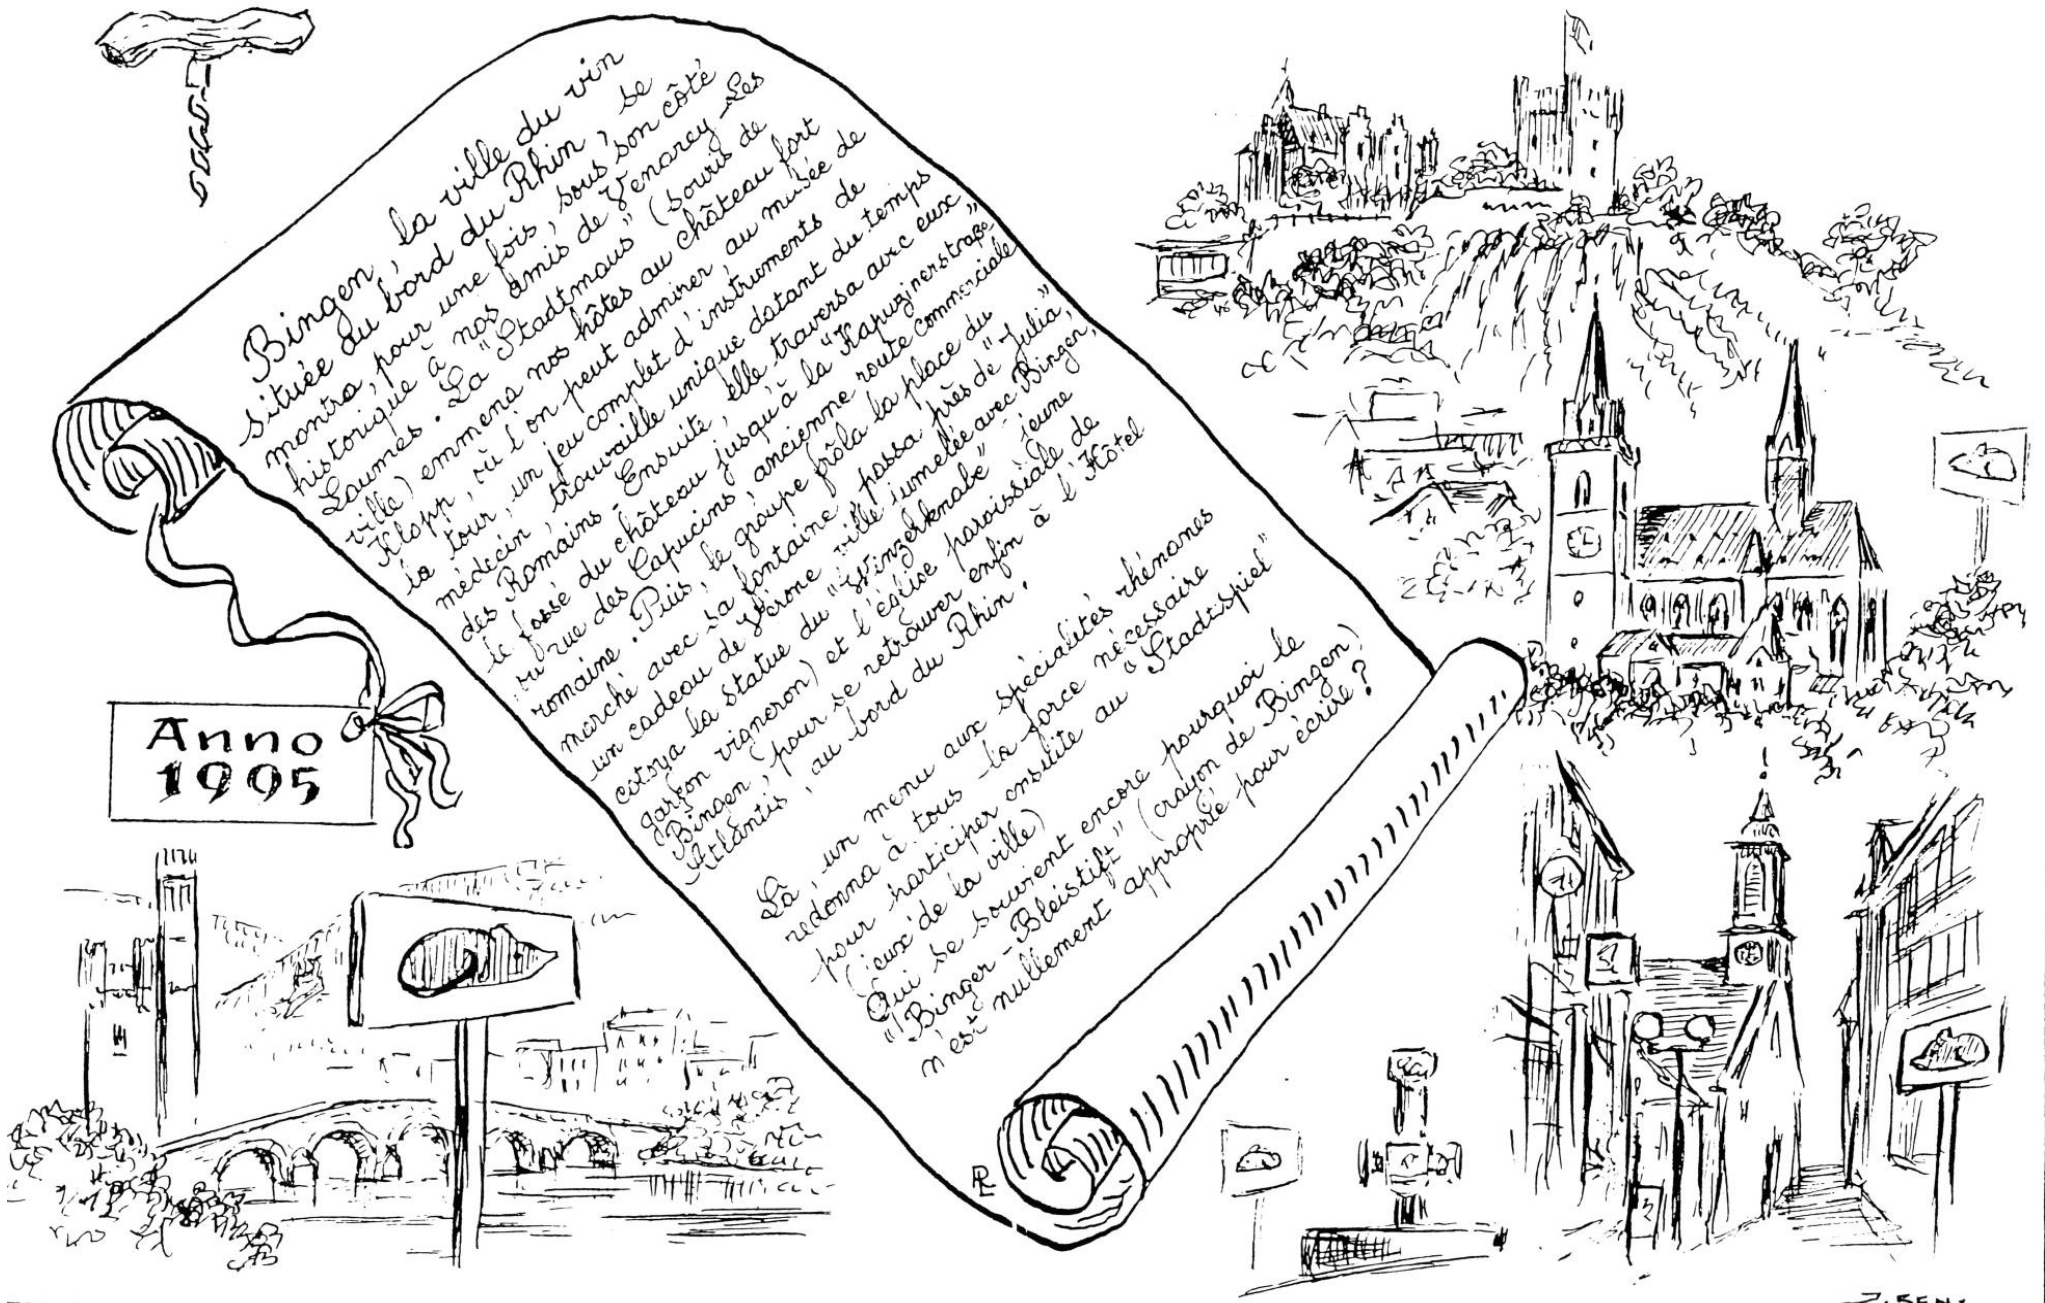 Bingen, la ville du vin
située au bord du Rhin, se
montra, pour une fois, sous son côté
historique à nos Amis de Venarey-Les
Laumes. La "Stadtmaus" (souris de
ville) emmena nos hôtes au château fort
Klopp, où l'on peut admirer, au musée de
la tour, un jeu complet d'instruments de
médecin, trouvaille unique datant du temps
des Romains - Ensuite, elle traversa avec eux
le fossé du château jusqu'à la "Kapuzinerstraße"
ou rue des Capucins, ancienne route commerciale
romaine. Puis, le groupe frôla la place du
marché avec sa fontaine, passa près de "Julia",
un cadeau de Vérone (ville jumelée avec Bingen,
cotoya la statue du "Winzerknabe" - jeune
garçon vigneron) et l'église paroissiale de
Bingen, pour se retrouver enfin à l'Hôtel
Atlantis, au bord du Rhin.
Là, un menu aux spécialités rhénanes
redonna à tous la force nécessaire
pour participer ensuite au "Stadtspiel"
(jeux de la ville)
Qui se souvient encore pourquoi le
"Binger-Bleistift" (crayon de Bingen)
n'est nullement approprié pour écrire?
Anno
1995
PL